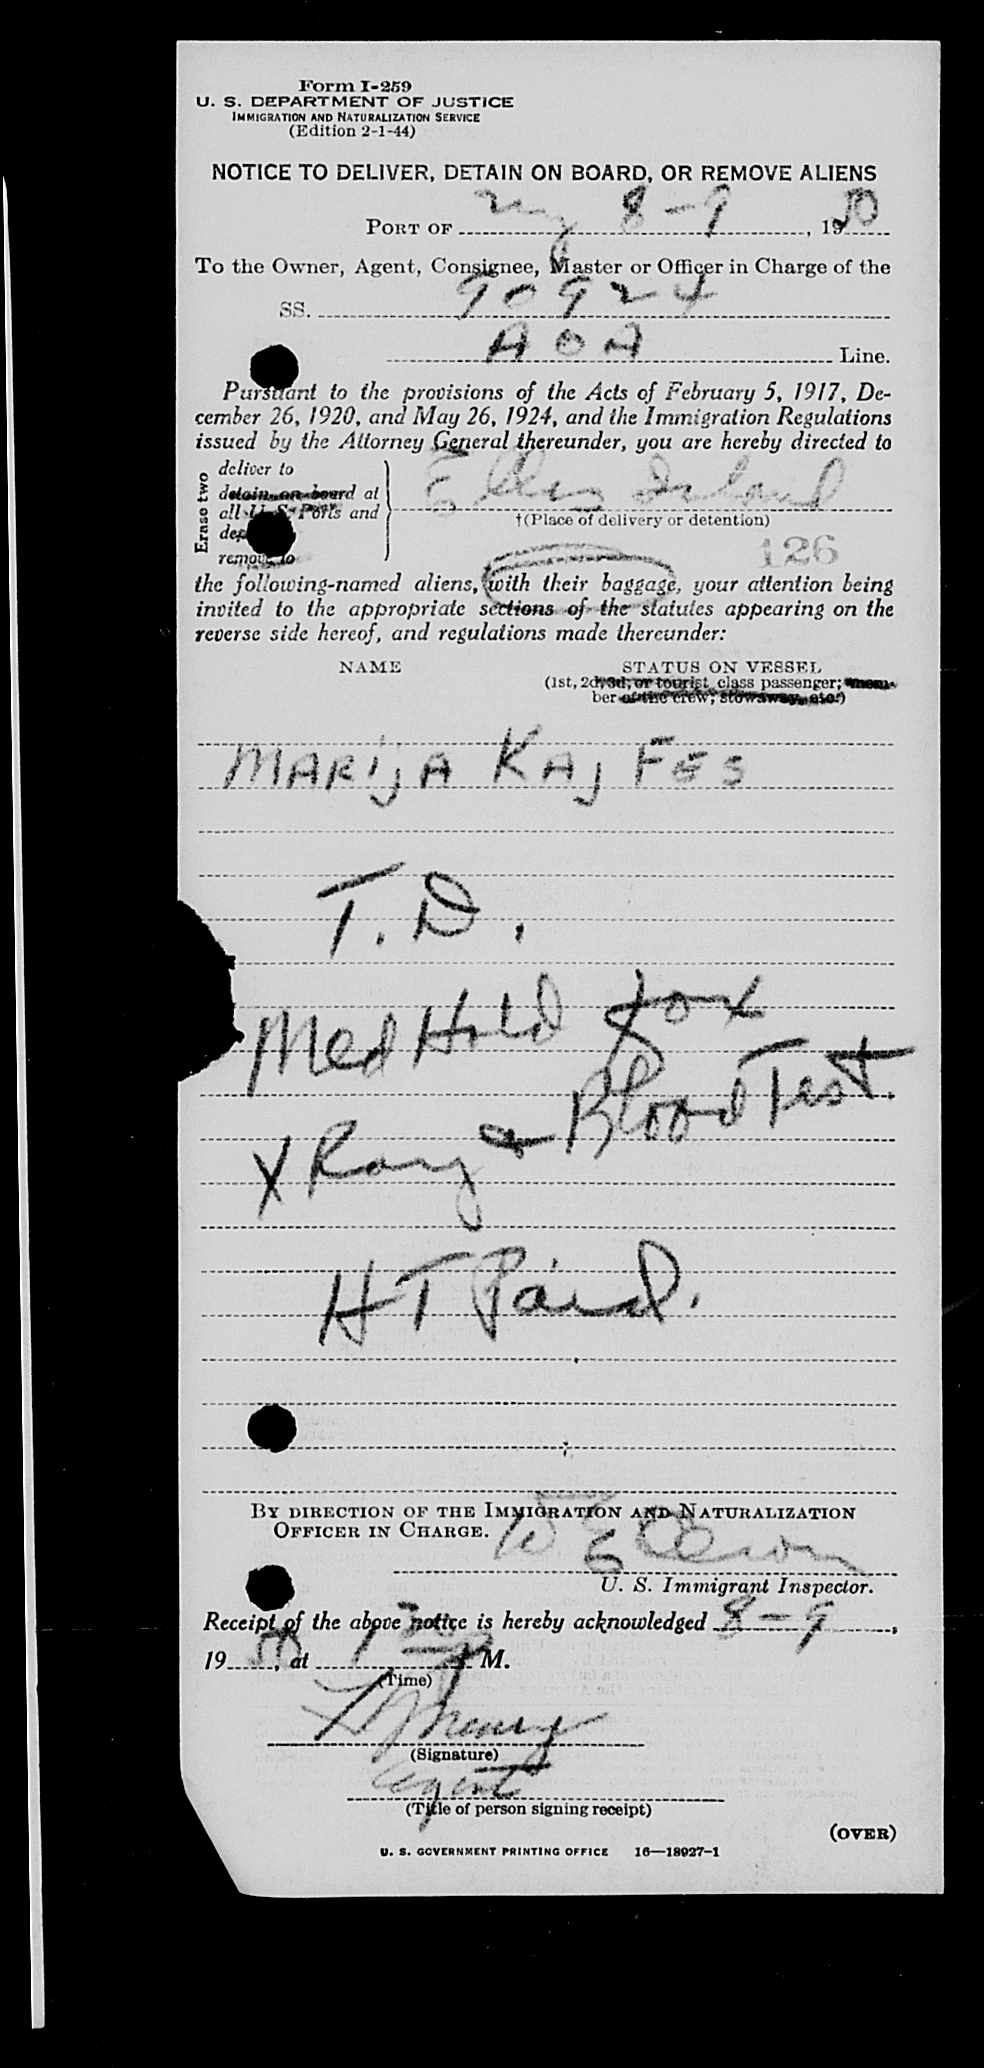 Form I-259
U. S. DEPARTMENT OF JUSTICE
IMMIGRATION AND NATURALIZATION SERVICE
(Edition 2-1-44)
NOTICE TO DELIVER, DETAIN ON BOARD, OR REMOVE ALIENS
PORT OF ny 8-9, 1950
To the Owner, Agent, Consignee, Master or Officer in Charge of the
SS. 90924
AOA Line.
Pursuant to the provisions of the Acts of February 5, 1917, De-
cember 26, 1920, and May 26, 1924, and the Immigration Regulations
issued by the Attorney General thereunder, you are hereby directed to
Erase two
deliver to
detain on board at
all U. S. Ports and
remove to
Ellis Island
†(Place of delivery or detention)
126
the following-named aliens, with their baggage, your attention being
invited to the appropriate sections of the statutes appearing on the
reverse side hereof, and regulations made thereunder:
NAME STATUS ON VESSEL
(1st, 2d, 3d, or tourist class passenger; mem-
ber of the crew; stowaway, etc.)
MARIJA KAJFES
T.D.
Med Hold for
X Ray & Blood Test.
HT Paid.
BY DIRECTION OF THE IMMIGRATION AND NATURALIZATION
OFFICER IN CHARGE.
U. S. Immigrant Inspector.
Receipt of the above notice is hereby acknowledged 8-9,
1950, at M.
(Time)
(Signature)
Agent
(Title of person signing receipt)
(OVER)
U. S. GOVERNMENT PRINTING OFFICE 16—18927-1